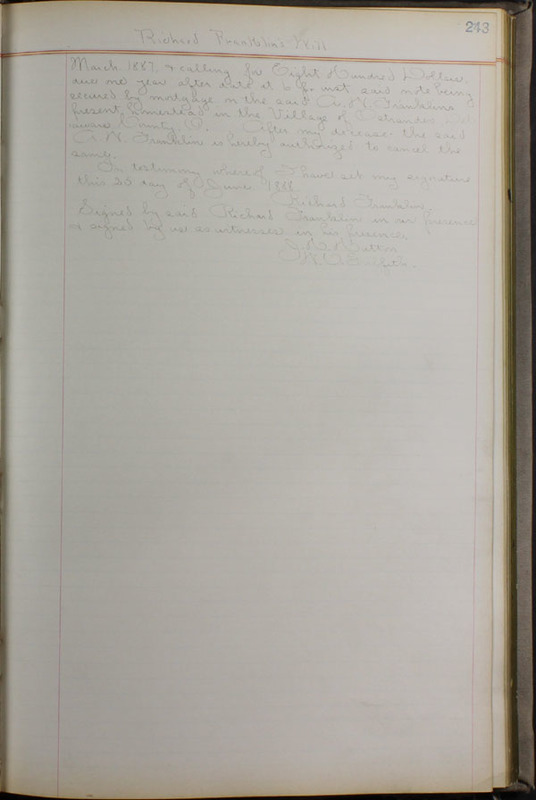 243
Richard Franklin's Will
March 1887, & calling for Eight Hundred Dollars
due one year after date at 6 pr. said note being
secured by mortgage on the said A. N. Franklins
present homestead in the Village of Ostrander Del
aware County O. After my decease the said
A. N. Franklin is hereby authorized to cancel the
same.
In testimony whereof I have set my signature
this 25 day of June 1888
Richard Franklin.
Signed by said Richard Franklin in our presence
& signed by us as witnesses in his presence,
Button